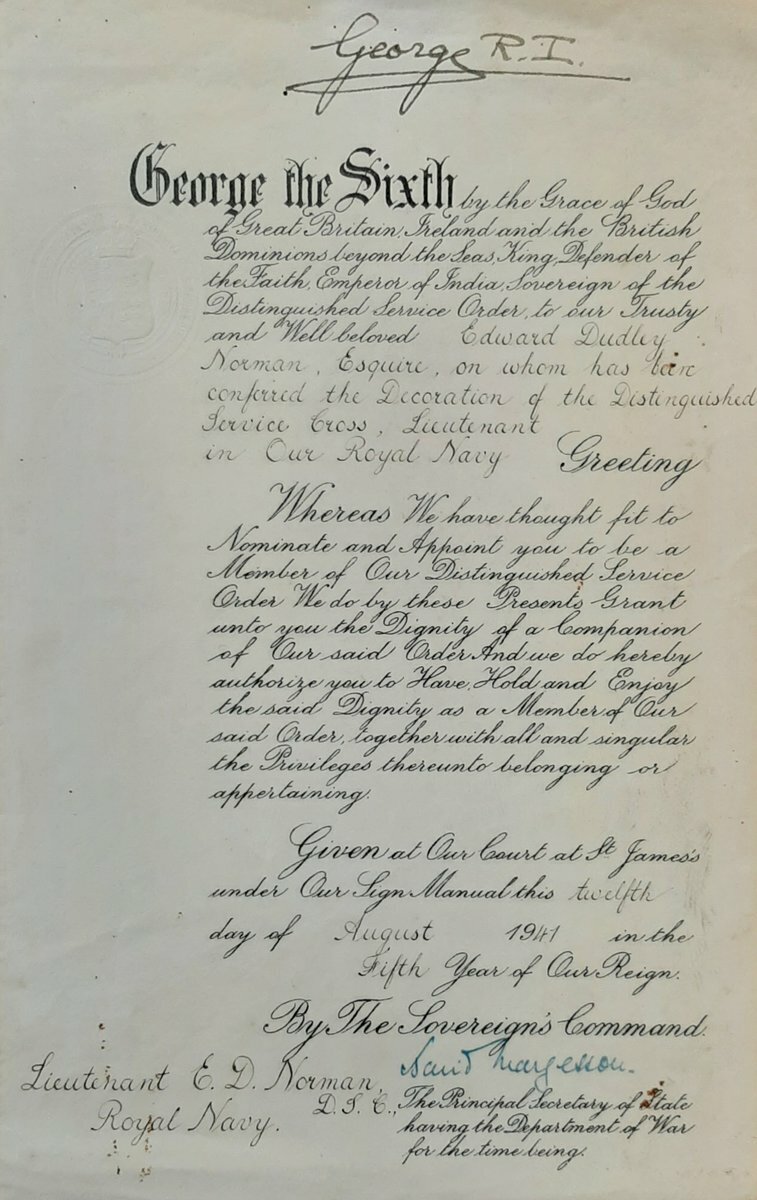 George R.I.
George the Sixth by the Grace of God
of Great Britain, Ireland and the British
Dominions beyond the Seas, King, Defender of
the Faith, Emperor of India, Sovereign of the
Distinguished Service Order, to our Trusty
and Well beloved Edward Dudley
Norman, Esquire, on whom has been
conferred the Decoration of the Distinguished
Service Cross, Lieutenant
in Our Royal Navy Greeting
Whereas We have thought fit to
Nominate and Appoint you to be a
Member of Our Distinguished Service
Order We do by these Presents Grant
unto you the Dignity of a Companion
of Our said Order And we do hereby
authorize you to Have, Hold and Enjoy
the said Dignity as a Member of Our
said Order, together with all and singular
the Privileges thereunto belonging or
appertaining.
Given at Our Court at St. James's
under Our Sign Manual this twelfth
day of August 1941 in the
Fifth Year of Our Reign.
By The Sovereign's Command.
David Margesson.
Lieutenant E. D. Norman, D.S.C.,
Royal Navy.
The Principal Secretary of State
having the Department of War
for the time being.